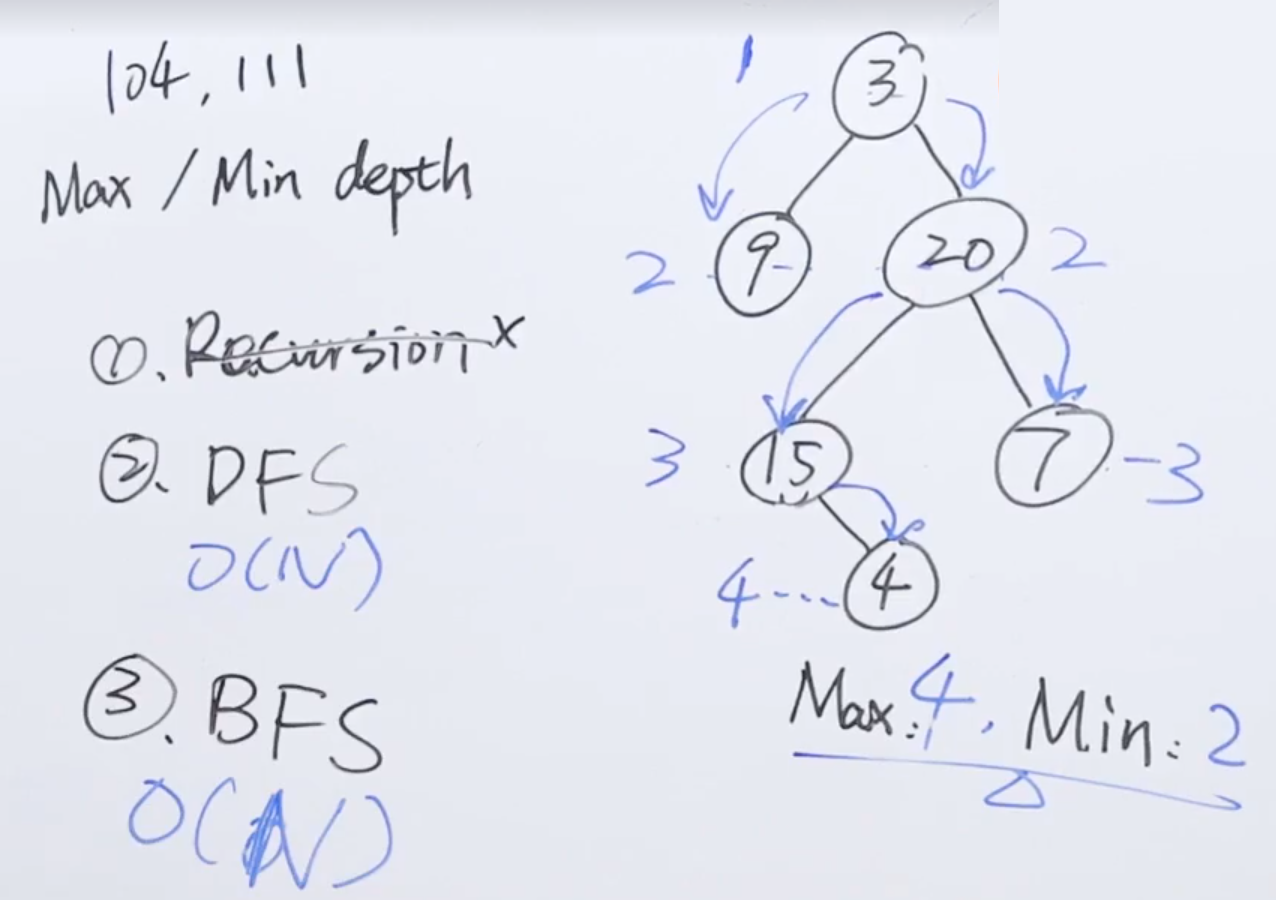 104, 111
Max / Min depth
①. Recursion x
②. DFS
O(N)
③. BFS
O(N)
1
3
2
9
20
2
3
15
7
-3
4 ---- 4
Max: 4. Min: 2